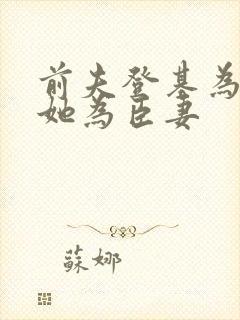 前夫登基為
她為臣妻
蘇娜